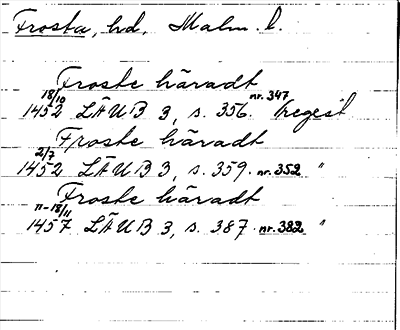 Frosta, hd, Malm. l.
Froste häradt
18/10 nr. 347
1452 LÄUB 3, s. 356. (regest
Froste häradt
2/7
1452 LÄUB 3, s. 359. nr. 352 "
Froste häradt
11-18/11
1457 LÄUB 3, s. 387. nr. 382 "